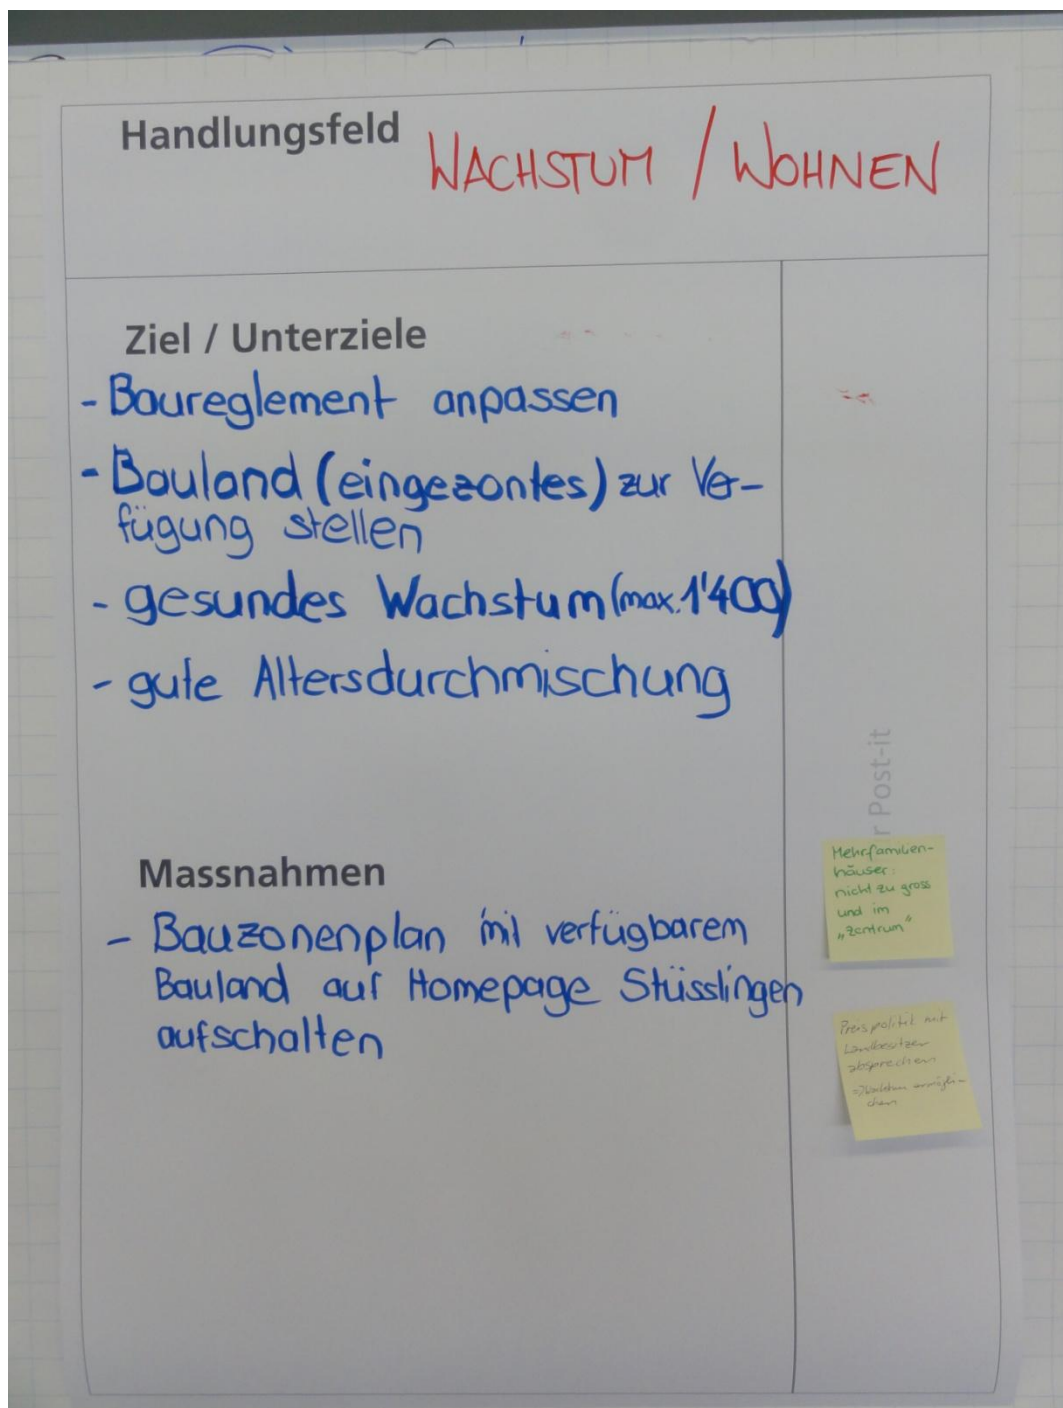 Handlungsfeld WACHSTUM / WOHNEN
Ziel / Unterziele
- Baureglement anpassen
- Bauland (eingezontes) zur Ver-
fügung stellen
- gesundes Wachstum (max. 1'400)
- gute Altersdurchmischung
Massnahmen
- Bauzonenplan mit verfügbarem
Bauland auf Homepage Stüsslingen
aufschalten
r Post-it
Mehrfamilien-
häuser:
nicht zu gross
und im
„Zentrum"
Preispolitik mit
Landbesitzer
absprechen
=> Wachstum ermögli-
chen